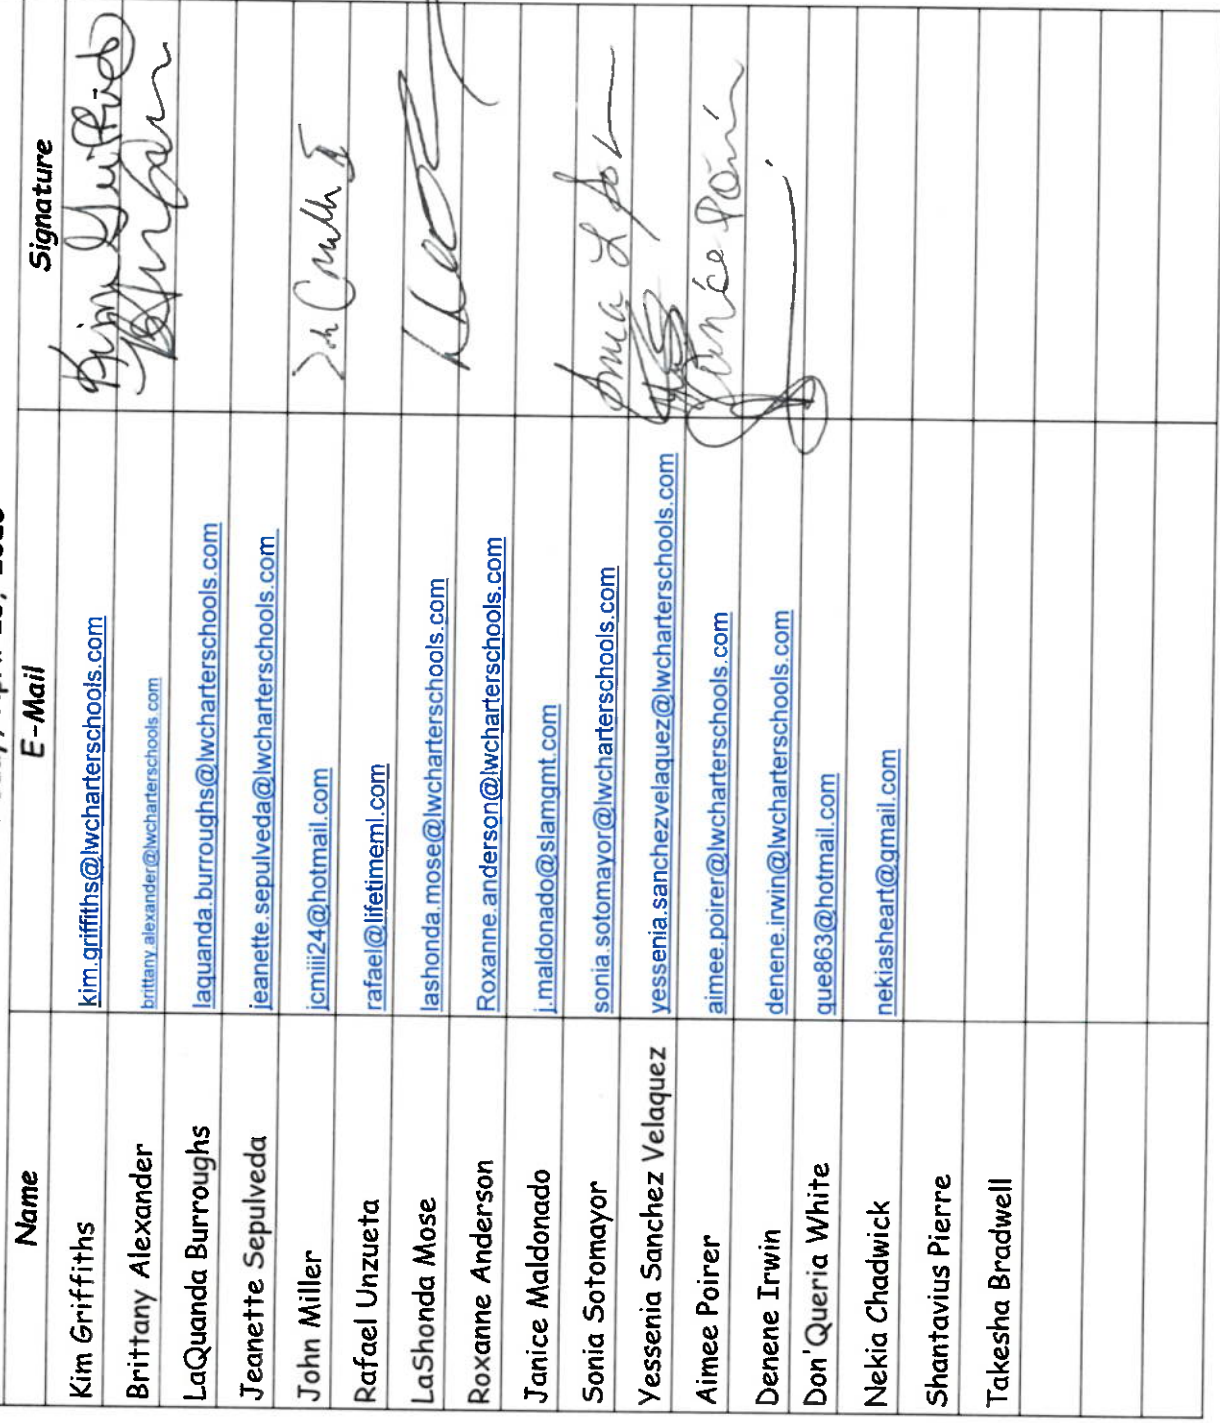 Name E-Mail Signature
Kim Griffiths kim.griffiths@lwcharterschools.com Kim Griffiths
Brittany Alexander brittany.alexander@lwcharterschools.com
LaQuanda Burroughs laquanda.burroughs@lwcharterschools.com
Jeanette Sepulveda jeanette.sepulveda@lwcharterschools.com
John Miller jcmiii24@hotmail.com
Rafael Unzueta rafael@lifetimeml.com
LaShonda Mose lashonda.mose@lwcharterschools.com
Roxanne Anderson Roxanne.anderson@lwcharterschools.com
Janice Maldonado j.maldonado@slamgmt.com
Sonia Sotomayor sonia.sotomayor@lwcharterschools.com
Yessenia Sanchez Velaquez yessenia.sanchezvelaquez@lwcharterschools.com
Aimee Poirer aimee.poirer@lwcharterschools.com
Denene Irwin denene.irwin@lwcharterschools.com
Don'Queria White que863@hotmail.com
Nekia Chadwick nekiasheart@gmail.com
Shantavius Pierre
Takesha Bradwell